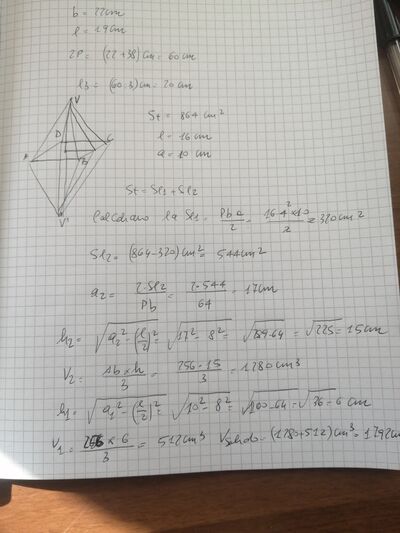 b = 22cm
l = 19cm
2P = (22+38)cm = 60cm
l3 = (60:3)cm = 20cm
V
D
C
A
B
V'
St = 864 cm²
l = 16cm
a = 10cm
St = Sl1 + Sl2
Calcoliamo la Sl1 = Pb·a/2 = 16·4·10/2 = 320cm²
Sl2 = (864-320)cm² = 544cm²
a2 = 2·Sl2/Pb = 2·544/64 = 17cm
h2 = √a2² - (l/2)² = √17² - 8² = √289-64 = √225 = 15cm
V2 = Ab×h/3 = 256·15/3 = 1280cm³
h1 = √a1² - (l/2)² = √10² - 8² = √100-64 = √36 = 6 cm
V1 = 256×6/3 = 512cm³ Vsolido = (1280+512)cm³ = 1792cm